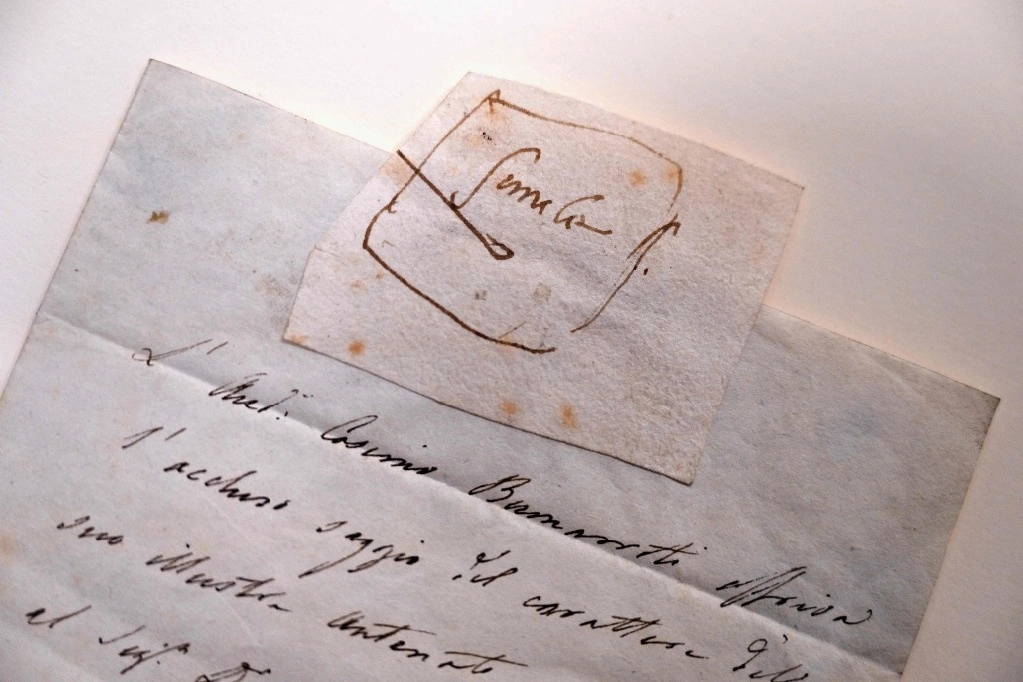 L' Aud.: Cosimo Buonarroti offriva
l'accluso saggio del carattere dell
suo illustre antenato
al Sig.r